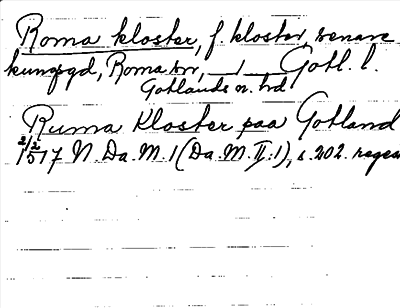 Roma kloster, f. kloster, senare
kungsgd, Roma sn, _ / _ Gotl. l.
Gotlands n. hd
Ruma Kloster paa Gotland
2/2
1517 N. Da. M. 1 (Da. M. II:1), s. 202. regest